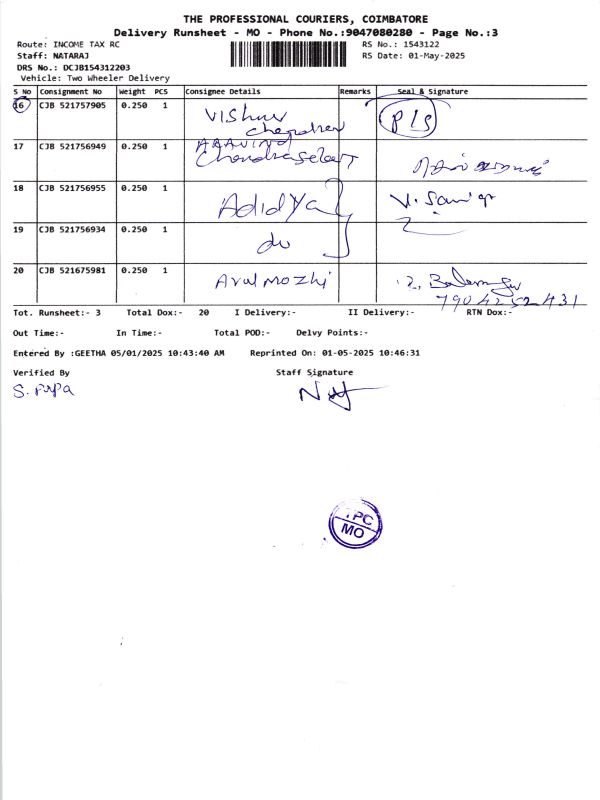 THE PROFESSIONAL COURIERS, COIMBATORE
Delivery Runsheet - MO - Phone No.:9047080280 - Page No.:3
Route: INCOME TAX RC
RS No.: 1543122
Staff: NATARAJ
RS Date: 01-May-2025
DRS No.: DCJB154312203
Vehicle: Two Wheeler Delivery
S No Consignment No Weight PCS Consignee Details Remarks Seal & Signature
16 CJB 521757905 0.250 1 Vishnu Chandran P/s
17 CJB 521756949 0.250 1 ARAVIND
18 CJB 521756955 0.250 1 Adidya
19 CJB 521756934 0.250 1 do
20 CJB 521675981 0.250 1 Arul mozhi
7904252431
Tot. Runsheet:- 3 Total Dox:- 20 I Delivery:- II Delivery:- RTN Dox:-
Out Time:- In Time:- Total POD:- Delvy Points:-
Entered By :GEETHA 05/01/2025 10:43:40 AM Reprinted On: 01-05-2025 10:46:31
Verified By Staff Signature
TPC
MO